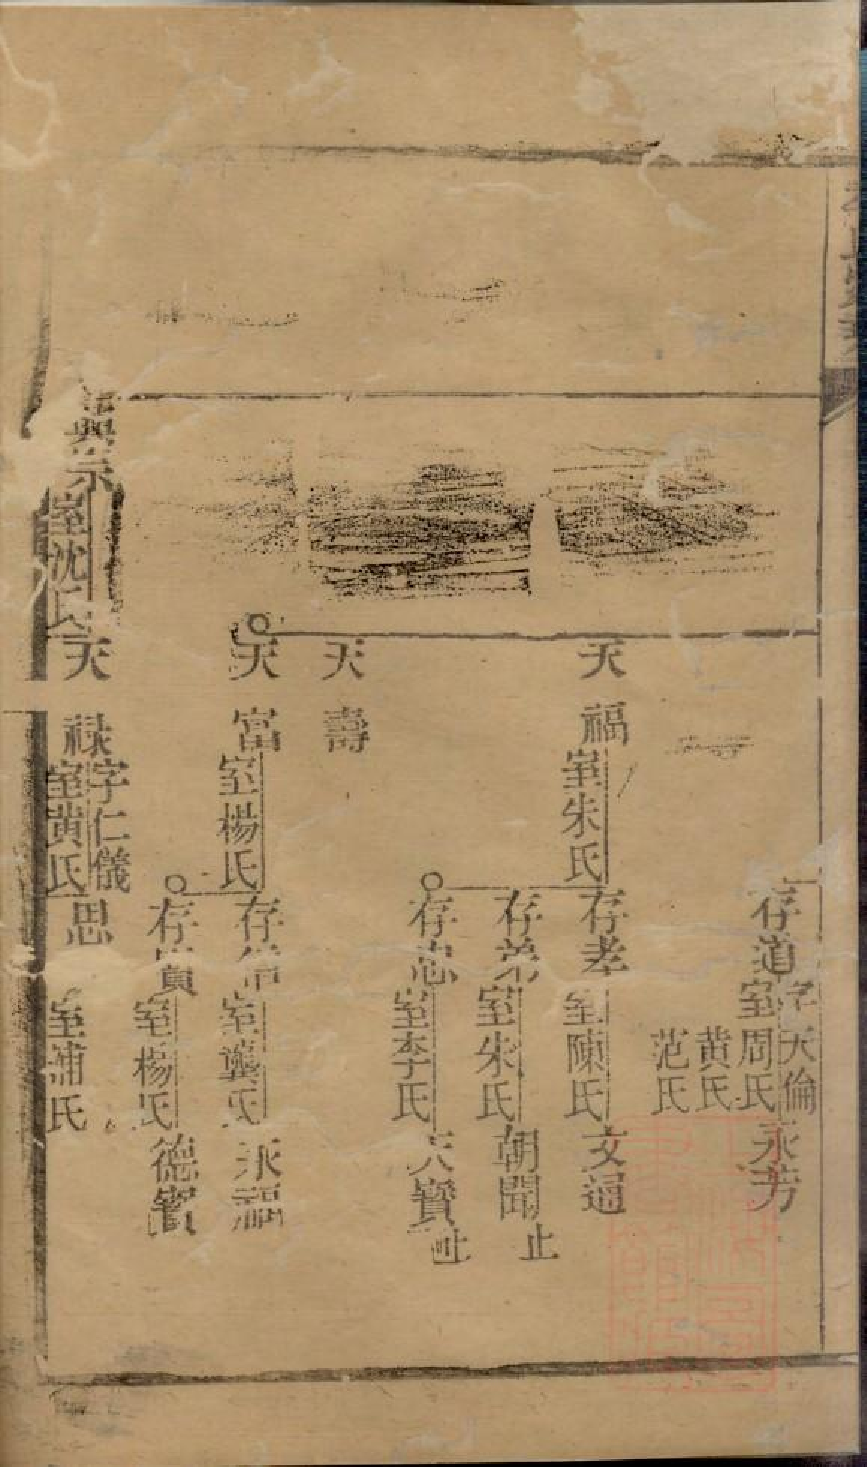 存道字天倫
室周氏
黄氏
范氏
永芳
天福室朱氏
存孝室陳氏
文通
存弟室朱氏
朝聞止
存忠室李氏
天寶止
天壽
天富室楊氏
存信室龔氏
永福
存實室楊氏
德
崇室沈氏
天禄字仁儀
室黄氏
思
室浦氏